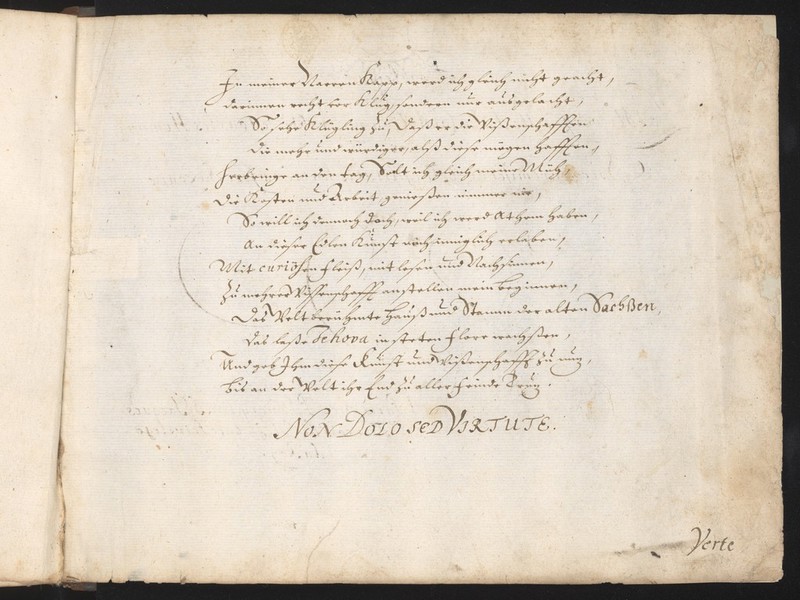 In meiner Narren Kapp, werd ich gleich nicht geacht,
darinnen recht der Klug, sondern nur ausgelacht,
So sehe Klügling zu, daß er die Wißenschafften
die mehr und würdiger, alß diese mögen hafften,
herbringe an den tag, Solt ich gleich meine Müh,
die Kosten und Arbeit genießen nimmer nie,
So will ich dennoch doch, weil ich werd Athem haben,
An dieser Edlen Kunst mich inniglich erlaben,
Mit curiosen fleiß, mit lesen und Nachsinnen,
Zu mehrer Wißenschafft anstellen mein beginnen,
Das Welt berühmte Hauß und Stamm der alten Sachßen,
das laße Jehova in steten Flore wachßen,
Und geb Ihm diese Kunst und Wißenschafft zu nuz,
bis an der Welt ihr End zu aller feinde Truz.
NON DOLO SED VIRTUTE.
Verte